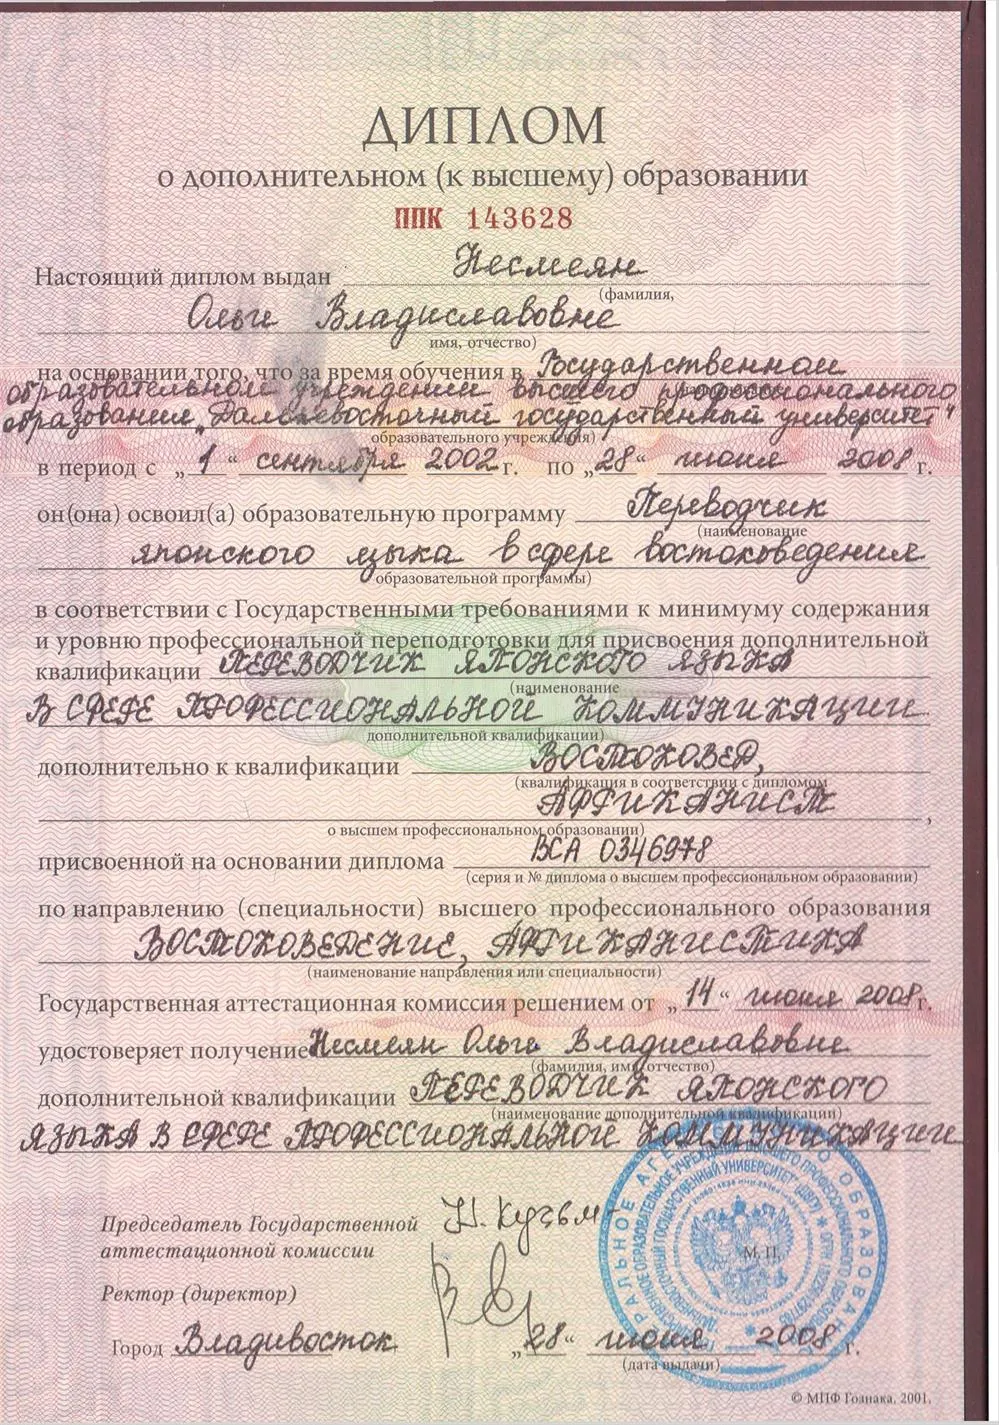 ДИПЛОМ
о дополнительном (к высшему) образовании
ППК 143628
Настоящий диплом выдан Несмеян
(фамилия,
Ольге Владиславовне
имя, отчество)
на основании того, что за время обучения в Государственном
образовательном учреждении высшего профессионального
образования „Дальневосточный государственный университет"
образовательного учреждения)
в период с „1“ сентября 2002 г. по „28“ июня 2008 г.
он(она) освоил(а) образовательную программу Переводчик
(наименование
японского языка в сфере востоковедения
образовательной программы)
в соответствии с Государственными требованиями к минимуму содержания
и уровню профессиональной переподготовки для присвоения дополнительной
квалификации ПЕРЕВОДЧИК ЯПОНСКОГО ЯЗЫКА
(наименование
В СФЕРЕ ПРОФЕССИОНАЛЬНОЙ КОММУНИКАЦИИ
дополнительной квалификации)
дополнительно к квалификации ВОСТОКОВЕД,
(квалификация в соответствии с дипломом
АФРИКАНИСТ ,
о высшем профессиональном образовании)
присвоенной на основании диплома ВСА 0346978
(серия и № диплома о высшем профессиональном образовании)
по направлению (специальности) высшего профессионального образования
ВОСТОКОВЕДЕНИЕ, АФРИКАНИСТИКА
(наименование направления или специальности)
Государственная аттестационная комиссия решением от „14“ июня 2008 г.
удостоверяет получение Несмеян Ольге Владиславовне
(фамилия, имя, отчество)
дополнительной квалификации ПЕРЕВОДЧИК ЯПОНСКОГО
(наименование дополнительной квалификации)
ЯЗЫКА В СФЕРЕ ПРОФЕССИОНАЛЬНОЙ КОММУНИКАЦИИ
Председатель Государственной
аттестационной комиссии
М. П.
Ректор (директор)
Город Владивосток „28“ июня 2008 г.
(дата выдачи)
© МПФ Гознака, 2001.